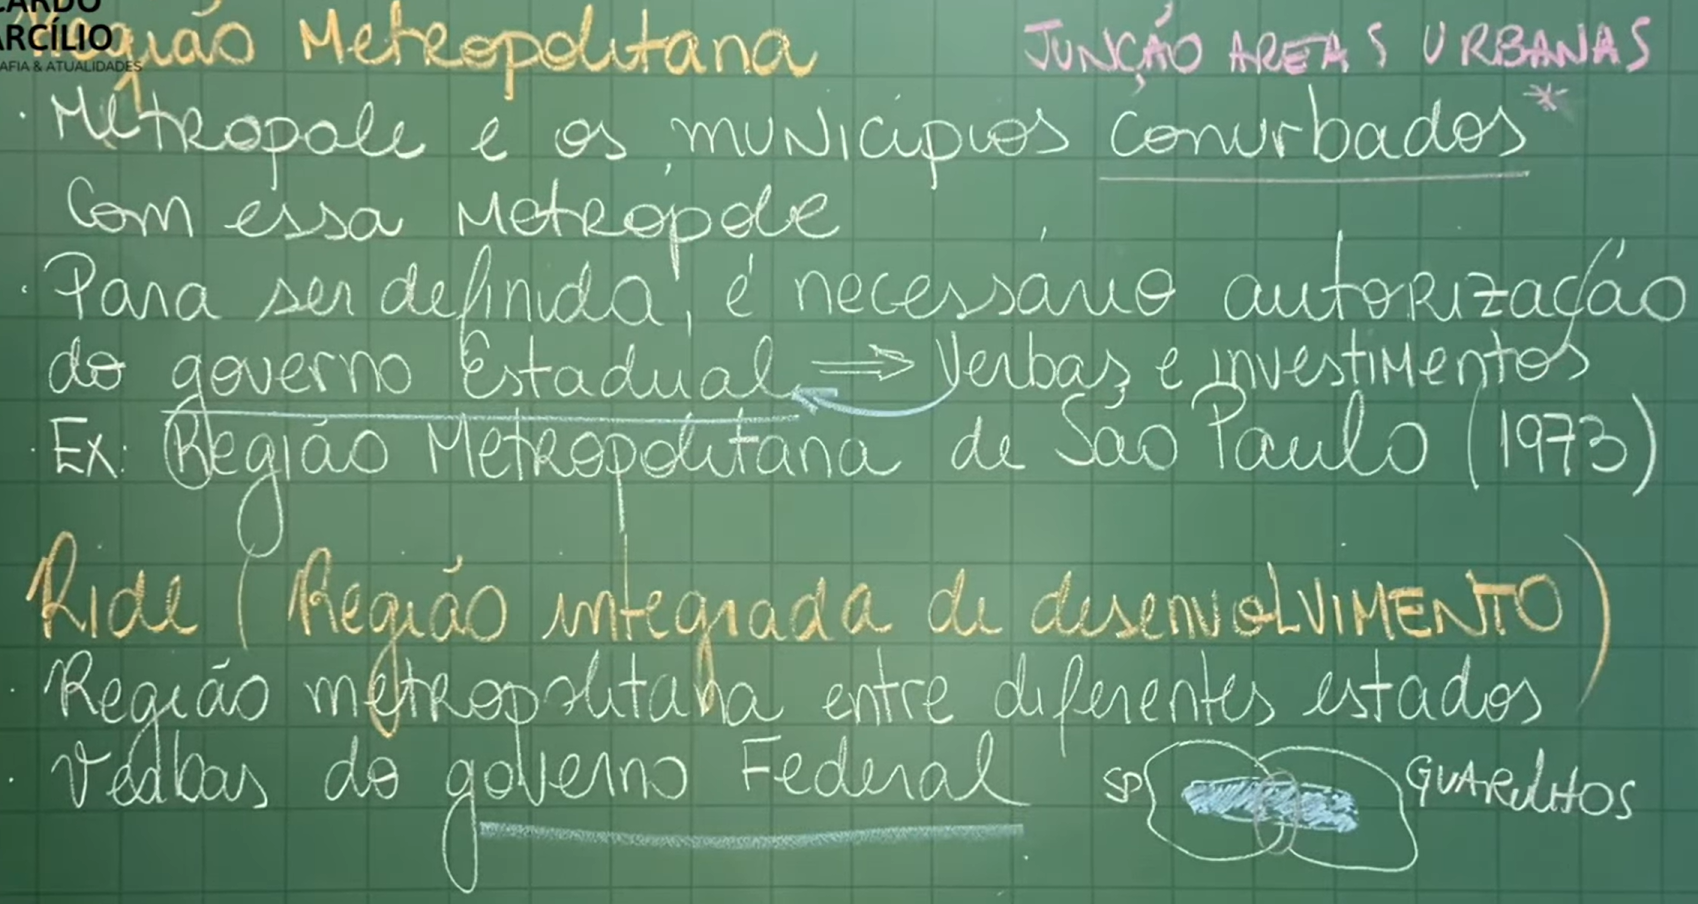 CARDO
ARCÍLIO
AFIA & ATUALIDADES
Região Metropolitana
JUNÇÃO AREAS URBANAS
*
· Metrópole e os municípios conurbados
com essa metrópole
· Para ser definida, é necessário autorização
do governo Estadual ⇒ Verbas e investimentos
· Ex: Região Metropolitana de São Paulo (1973)
Ride (Região integrada de desenvolVIMENTO)
· Região metropolitana entre diferentes estados
· Verbas do governo Federal
SP
GUARULHOS